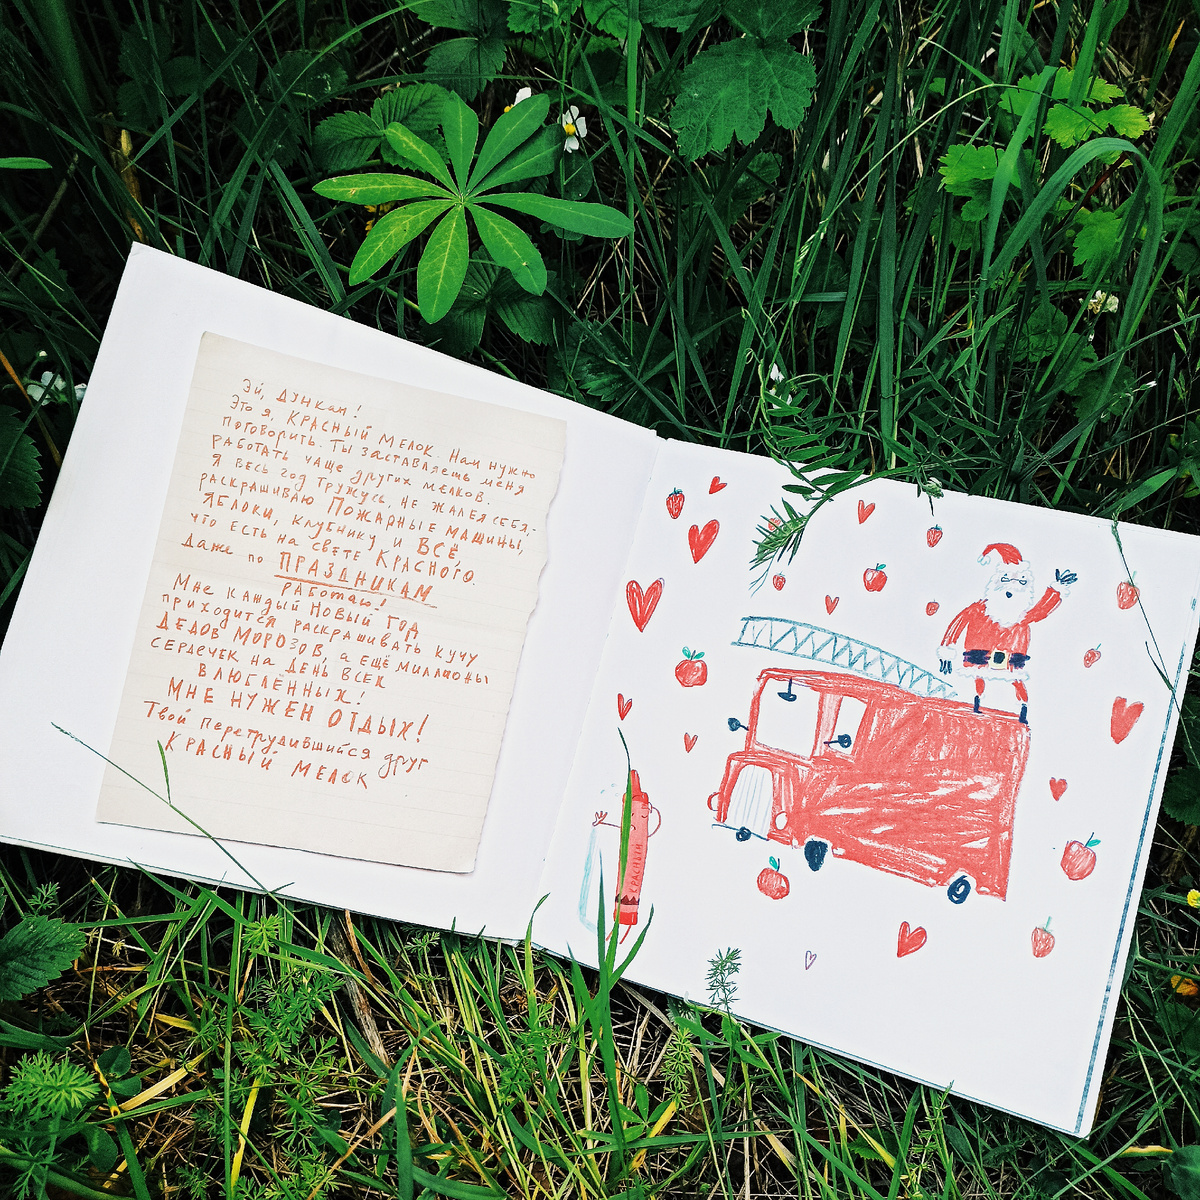 Эй, Дункан!
Это я, Красный мелок. Нам нужно
поговорить. Ты заставляешь меня
работать чаще других мелков.
Я весь год тружусь, не жалея себя, -
раскрашиваю Пожарные машины,
яблоки, клубнику и ВСЁ,
что есть на свете красного.
Даже по ПРАЗДНИКАМ
работаю!
Мне каждый Новый год
приходится раскрашивать кучу
Дедов Морозов, а ещё миллионы
сердечек на День всех
влюблённых!
МНЕ НУЖЕН ОТДЫХ!
Твой перетрудившийся друг
Красный мелок
КРАСНЫЙ